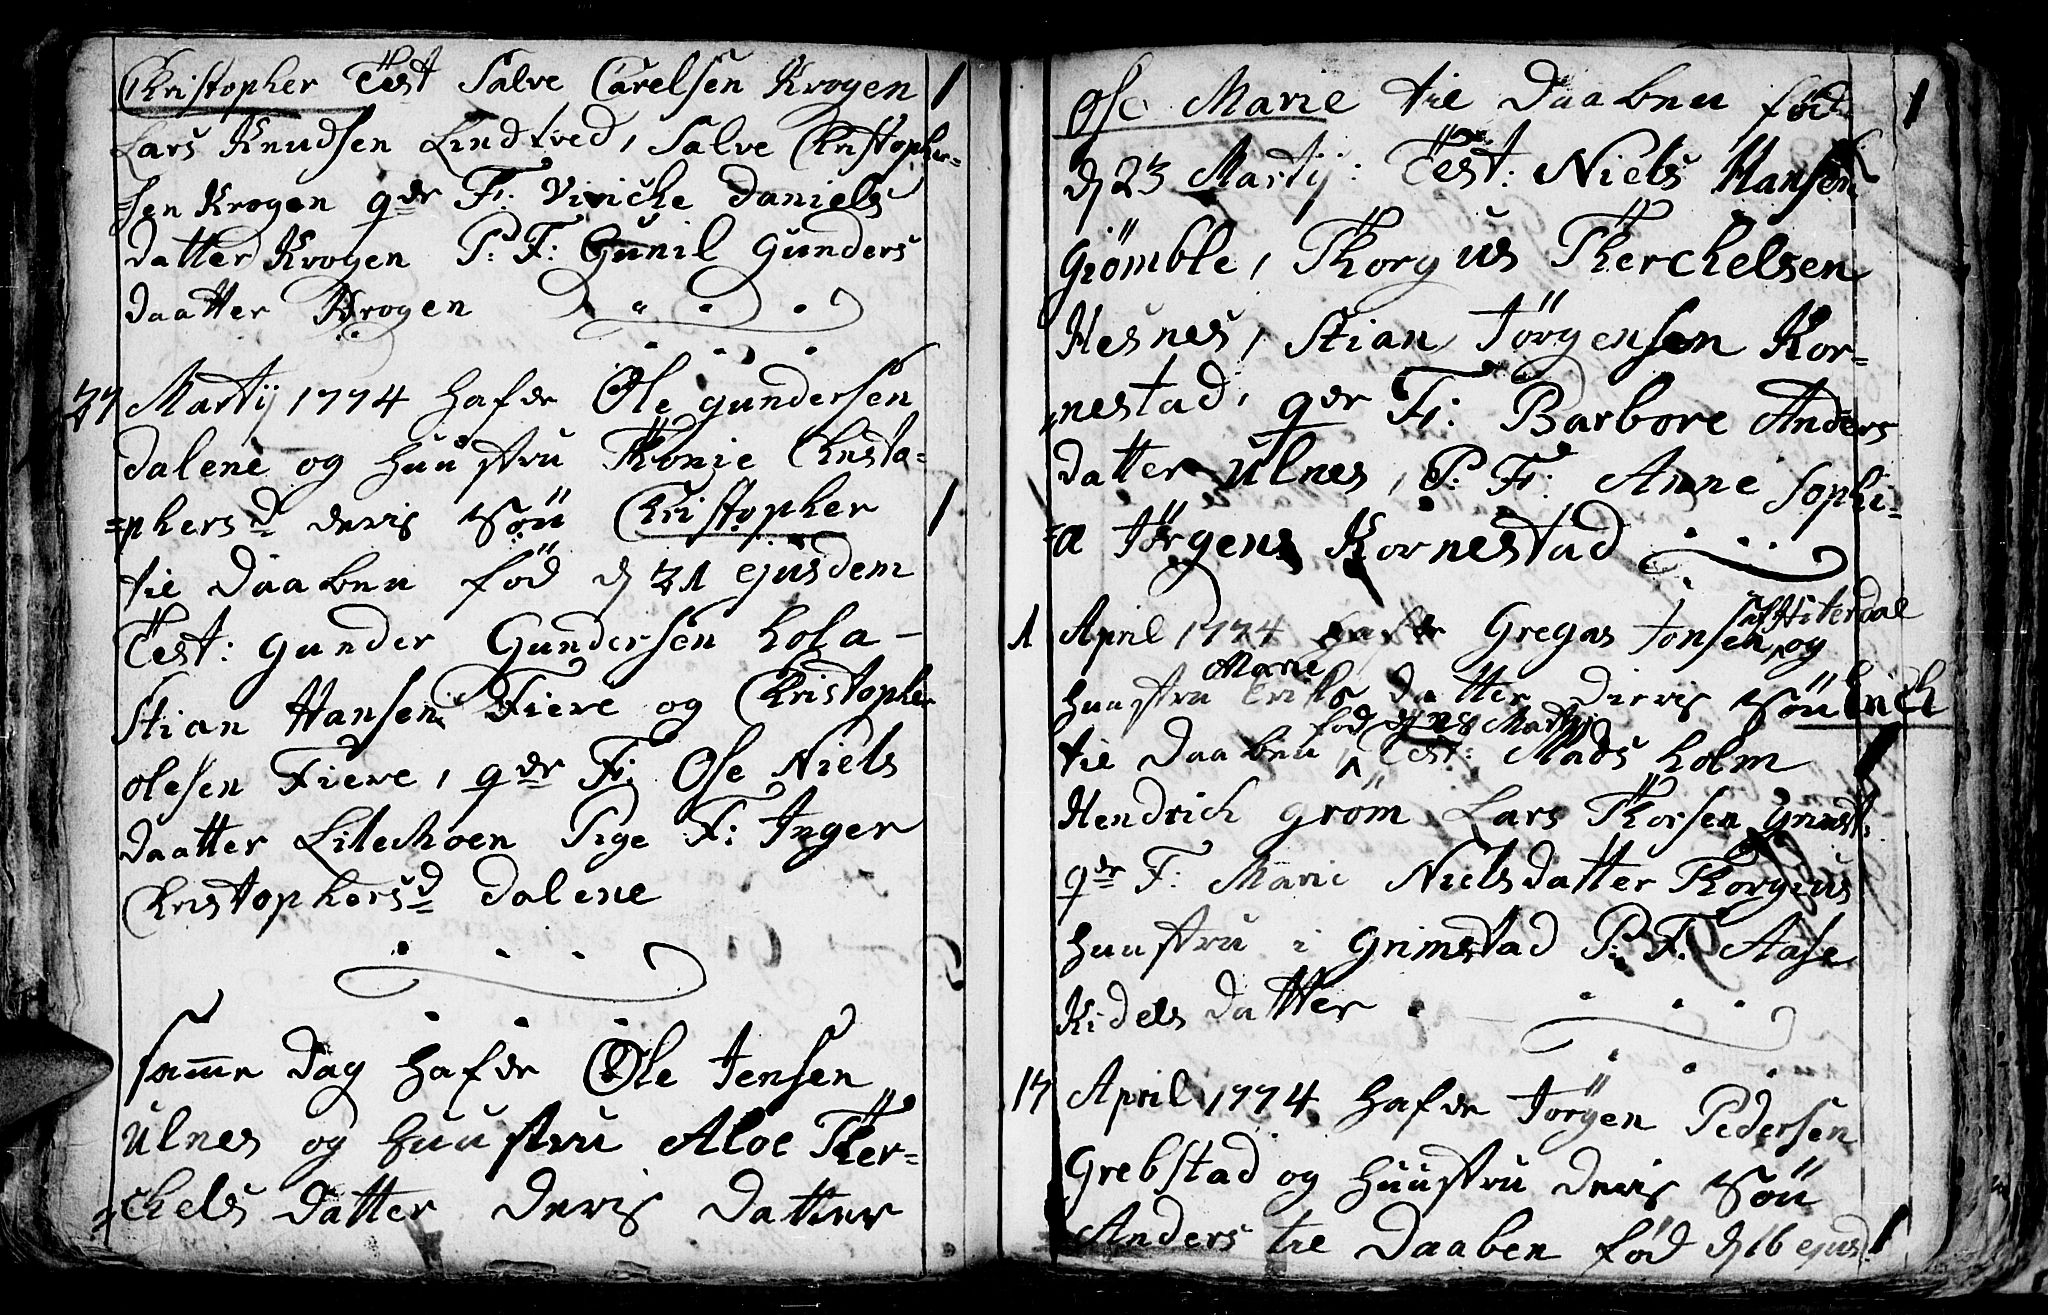 Christopher Test Salve Carelsen Krogen 1
Lars Knudsen Lindtved, Salve Christopher=
=sen Krogen qdr F: Vivicke Daniels
datter Krogen P: F: Gunil Gunders
daatter Krogen
27 Martij 1774 hafde Ole gundersen
dalene og huustru Thonie Christo=
=phersd deris Søn Christopher 1
til Daaben fød d 21 ejusdem
Test: gunder Gundersen hola
Stian Hansen Fiere og Christopher
olesen Fiere, qdr F: Ose Niels
daatter Lilechoen Pige F: Inger
Christophersd dalene
samme dag hafde Ole Jensen
Ulnes og huustru Aloe Ther=
=chels datter deris datter
Ose Marie til Daaben fød 1
d 23 Martij: Test: Niels Hansen
Giömble, Thorgius Therchelsen
Hesnes, Stian Jörgensen Kor=
=nestad, qdr F: Barbore Anders
datter Ulnes, P: F: Anne Sophi=
=a Jörgens Kornestad
af Hiterdal
1 April 1774 hafde Gregas Jonsen og
Marie
huustru Eriks datter dieris Søn Erich
fød d 28 Martij
til Daaben ^ Test: Mads holm 1
Hendrich gröm Lars Thorsen Grimst:
qdr F: Marie Nielsdatter Thorgius
huustru i Grimstad P: F: Aase
Kidels datter
17 April 1774 hafde Jörgen Pedersen
Grebstad og huustru deris Søn
Anders til Daaben fød d 16 ejusd 1